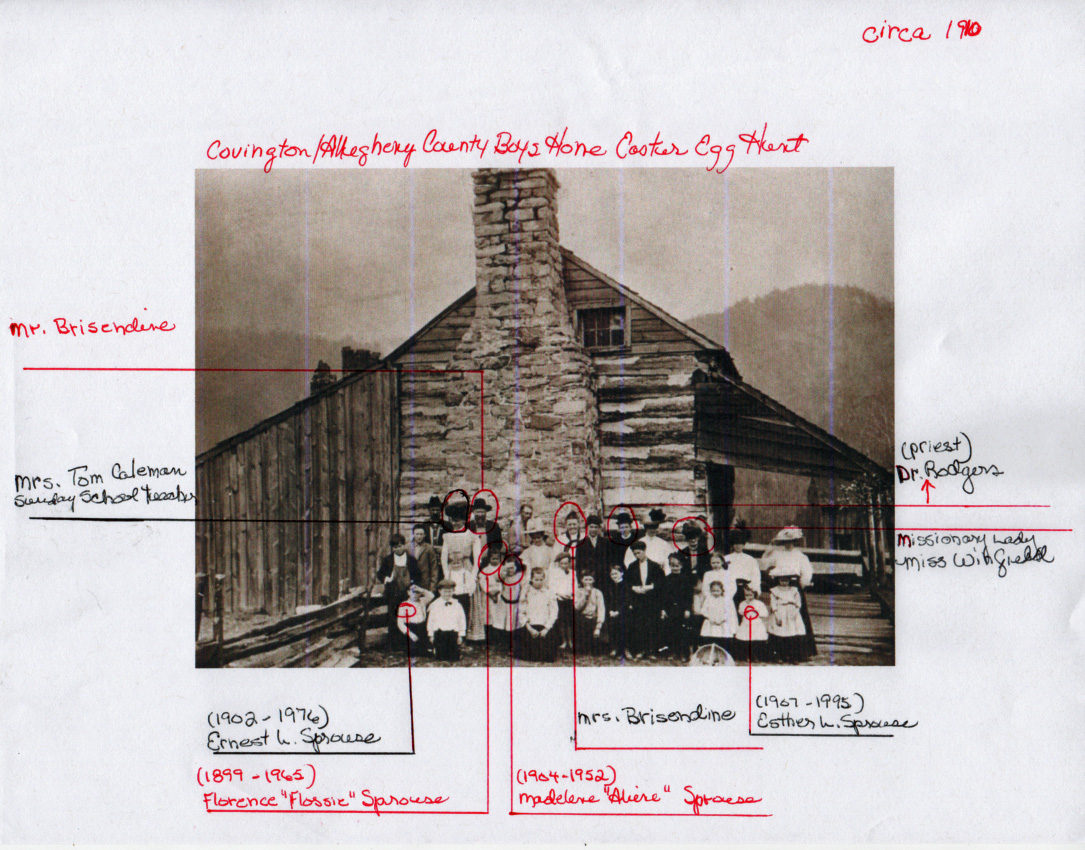 circa 1910
Covington/Allegheny County Boys Home Easter Egg Hunt
Mr. Brisendine
Mrs. Tom Caleman
Sunday School Teacher
(priest)
Dr. Rodgers
Missionary Lady
Miss Wingfield
(1902 - 1976)
Ernest L. Sprouse
(1899 - 1965)
Florence "Flossie" Sprouse
(1904-1952)
Madelene Sprouse
Mrs. Brisendine
(1907 - 1995)
Esther L. Sprouse